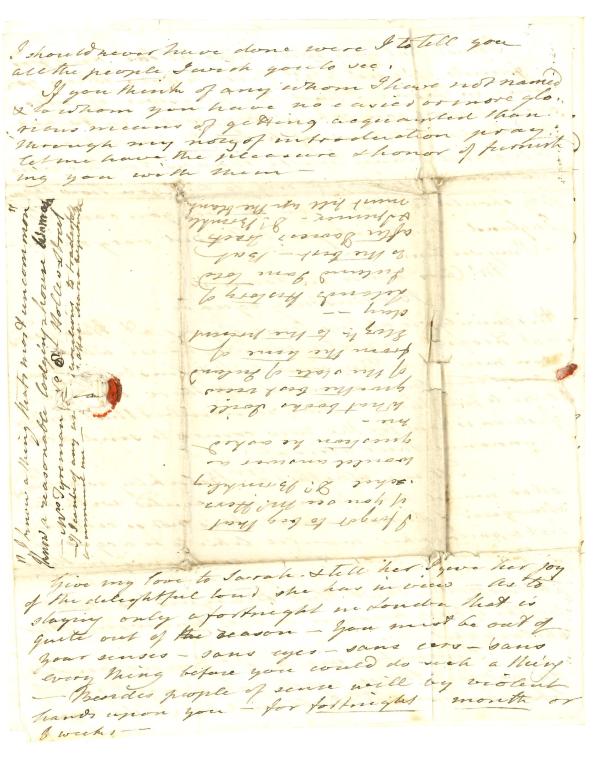 I should never have done were I to tell you
all the people I wish you to see.
If you think of any whom I have not named
& to whom you have no easier or more glo-
rious means of getting acquainted than
through my note of introduction pray
let me have the pleasure & honor of furnish
ing you with them —
I forgot to say that
if you see Mr. Hers-
chel Dr. Brinkley
would answer a
question he asked
me —
What books will
give the best view
of the state of Ireland
from the time of
Eliz. to the present
day —
Leland's History of
Ireland I am told
is the best — but
after Davies's Tracts
& Spencer — Dr. Brinkley
must fill up the blank
"I know a thing that's most uncommon"
I know a reasonable lodging house Woman
— Mrs Tyreman Holles Street
— If any
Give my love to Sarah & tell her I give her joy
of the delightful tour she has in view As to
staying only a fortnight in London that is
quite out of the reason — You must be out of
your senses — sans eyes — sans ears — sans
every thing before you could do such a thing
— Besides people of sense will lay violent
hands upon you — for fortnight – month or
3 weeks —